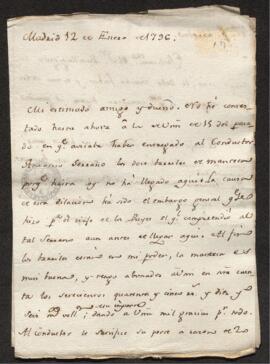 Madrid 12 de Enero de 1796.
Mi estimado amigo y dueño. No hé contes-
tado hasta ahora à la de Vm de 15 del pasa-
do en q.e avisaba haber entregado al Conductor
Serrano los dos barriles de manteca
porq.e hasta oy no há llegado aqui. La causa
de esta dilacion há sido el embargo general q.e se
hizo p.a el viaje de los Reyes el q.e comprendió al
tal Serrano aun antes de llegar aqui. Al fin
los barriles estan en mi poder, la manteca es
muy buena, y tengo abonados à Vm en mi cuen-
ta los setecientos quarenta y cinco r.s y diez y
seis mrs vell.n; dando à Vm mil gracias p.r todo.
Al conductor se satisfizo su porte à razon de 20